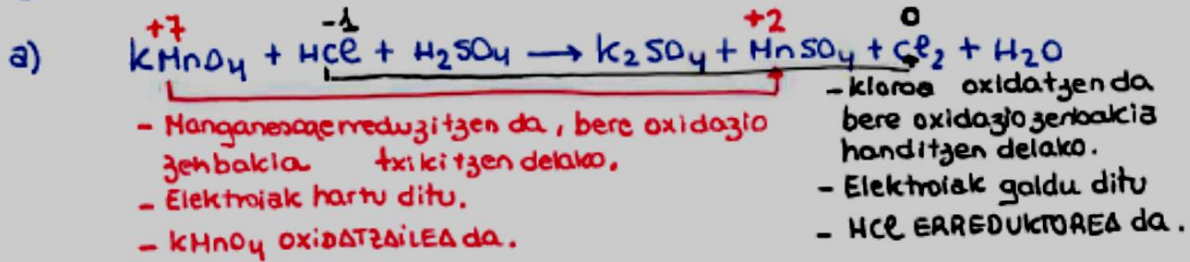 +7 -1 +2 0
a) KMnO₄ + HCl + H₂SO₄ → K₂SO₄ + MnSO₄ + Cl₂ + H₂O
- Manganesoa erreduzitzen da, bere oxidazio
zenbakia txikitzen delako.
- Elektroiak hartu ditu.
- KMnO₄ OXIDATZAILEA da.
- kloroa oxidatzen da
bere oxidazio zenbakia
handitzen delako.
- Elektroiak galdu ditu
- HCl ERREDUKTOREA da.